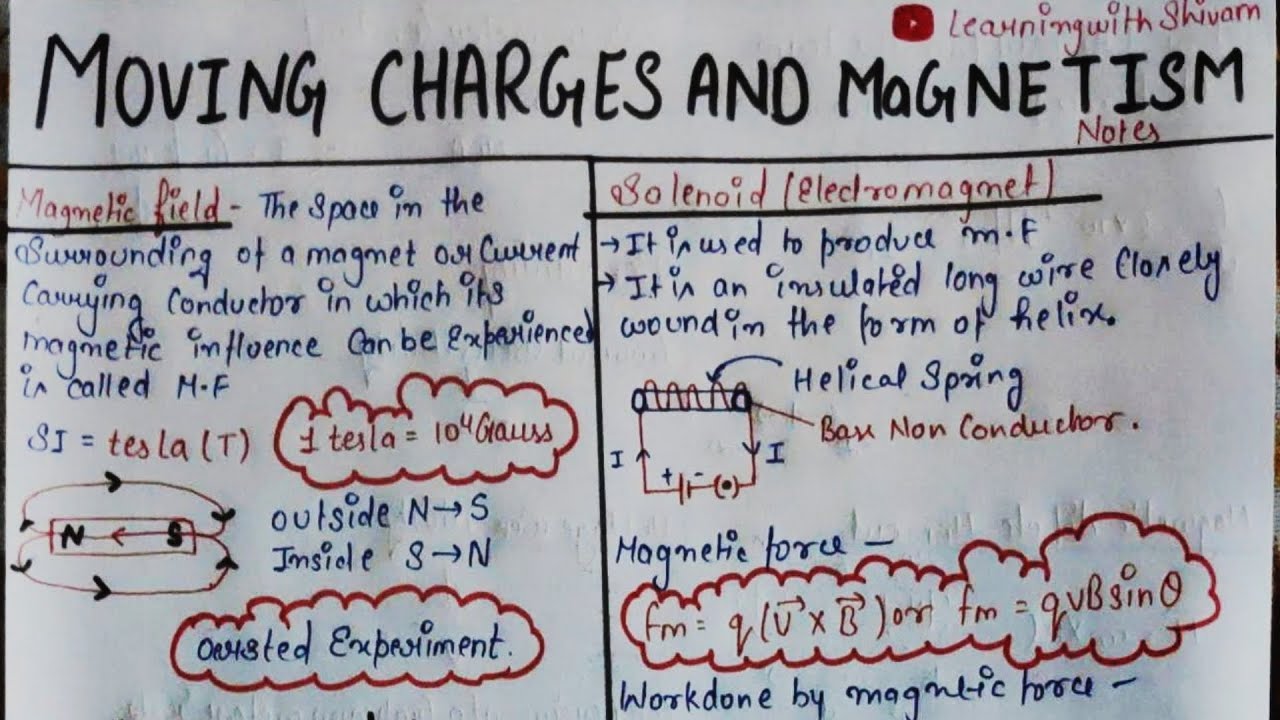 Learningwith Shivam
MOVING CHARGES AND MaGNETISM
Notes
Magnetic field - The Space in the
Surrounding of a magnet or Current
Carrying Conductor in which its
magnetic influence Can be Experienced
is called M.F
SI = tesla (T)
1 tesla = 10⁴ Gauss
N S
outside N→S
Inside S→N
Oersted Experiment.
Solenoid (Electromagnet)
→ It is used to produce m.F
→ It is an insulated long wire Closely
wound in the form of helix.
Helical Spring
Base Non Conductor.
I + - I
Magnetic force -
Fm = q(V⃗ × B⃗) or fm = qvBsinθ
Workdone by magnetic force -